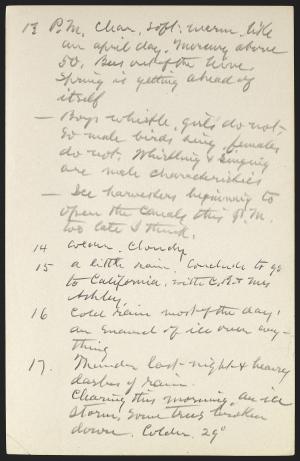 13 P.M. Clear, soft, warm, like
an april day. Mercury above
50. Bees out of the hive.
Spring is getting ahead of
itself
— Boys whistle, girls do not.
So male birds sing, females
do not. Whistling & singing
are male characteristics
— Ice harvesters beginning to
open the canals this P.M.
too late I think.
14 warm. Cloudy
15 a little rain. Conclude to go
to California, with C.B. & Mrs
Ashley.
16 Cold rain most of the day;
an enamel of ice over every-
thing
17. Thunder last night & heavy
dashes of rain.
Clearing this morning, an ice
storm, some trees broken
down. Colder. 29°